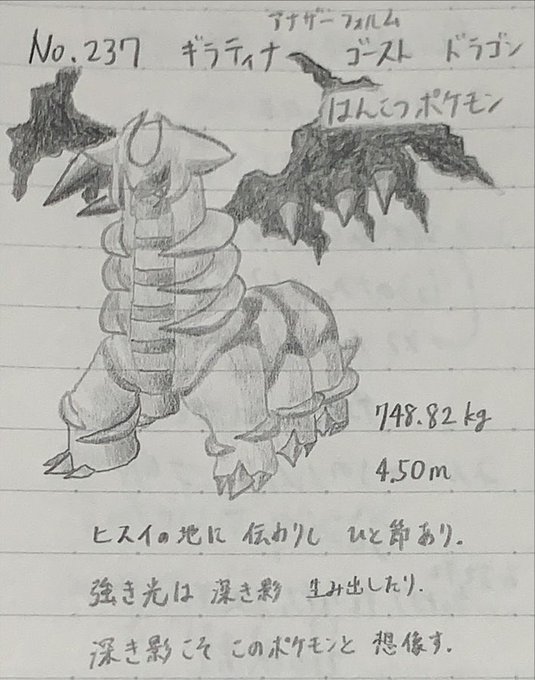 アナザーフォルム
No.237 ギラティナ ゴースト ドラゴン
はんこつポケモン
748.82kg
4.50m
ヒスイの地に 伝わりし ひと節あり.
強き光は 深き影 生み出したり.
深き影こそ このポケモンと 想像す.